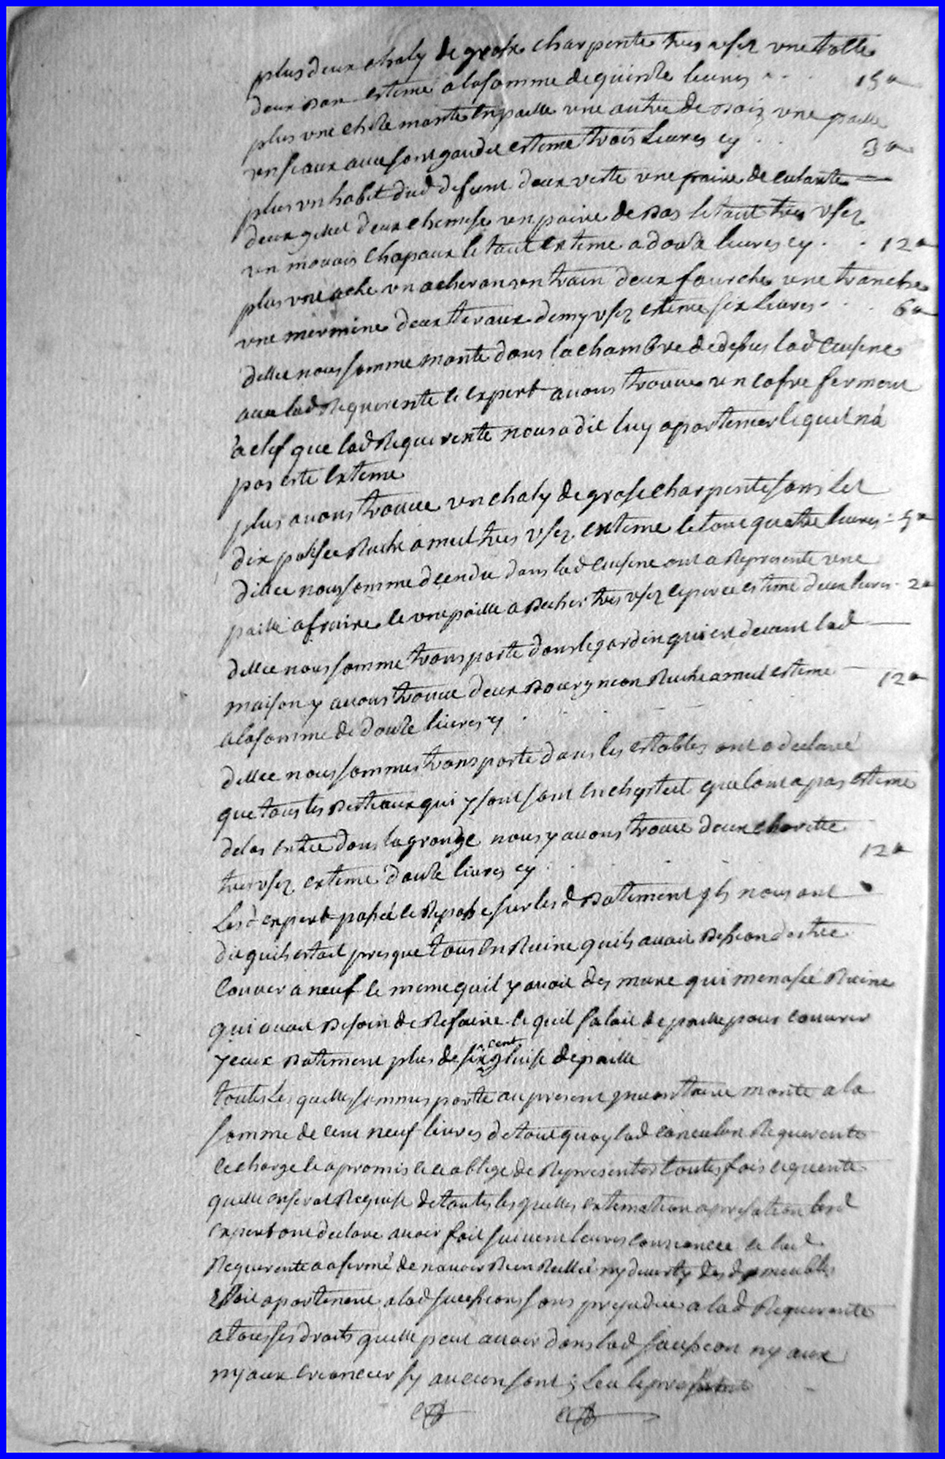 plus deux chaly de grosse charpente tres usez une table
deux ban estimé a la somme de quinze livres 15#
plus une ... monté en paille une autre de bois une paille
un seaux avec son gaudet estimé trois livres cy 3#
plus un habit dud defunt deux veste une paire de culante
deux gilet deux chemise un paire de bas le tout tres usez
un mouais chapaux le tout extimé a douze livres cy 12#
plus une ache un acheran un train deux fourche une tranche
une mermine deux teraux demy usez extimé six livres 6#
dillec nous somme monté dans la chambre dedesus lad cuisine
avec lad Requerente le expert avons trouve un cofre fermant
a clef que lad Requerente nous a dit luy apartenir lequel nà
pas esté extime
plus avons trouve un chaly de grose charpente sans let
dix ... Ruche a meil tres usez extime le tout quatre livres
dillec nous somme decendu dans lad cuisine ont a Represente une
paille a fraire le une paille a becher tres usez le perce estime deux livres 2#
dillec nous somme transporte dans le gardin qui est devant lad
maison y avons trouve deux Bourgneon Ruche a meil estime 12#
a la somme de douze livres cy
dillec nous sommes transporte dans les estables ont a declaré
que tous les bestiaux qui y sont sont en chepteil que lon a pas estimé
de las entré dans la grange nous y avons trouve deux charette
tres usez extime douze livres cy 12#
Les d expert passé le Repos sur les d Batiment ils nous ont
dit quil estoit presque tous en Ruine quils avoit besoin destre
couvert a neuf le meme quil y avoit des mure qui menasée Ruine
qui avoit besoin de Refaire le quil faloit de paille pour couvrir
yceux batiment plus de six cent gluise de paille
toutes les quelle sommes porté au present inventaire monte a la
somme de cent neuf livres de tout quoy lad Requerente
ce charge le a promis le oblige de Representer toutes fois e quente
quelle en serat Requise de toutes les quelles extimation apresation lesd
expert ont declare avoir fait suivent leurs consience le lad
Requerente a afirmé de navoir Rien ... ny diverty des d meubles
... apartenent a lad sucession sans prejudice a lad Requerente
a tous ses droits quelle peut avoir dans lad sucesion ny aux
ny aux creancier sy aucun sont ; Leu le present